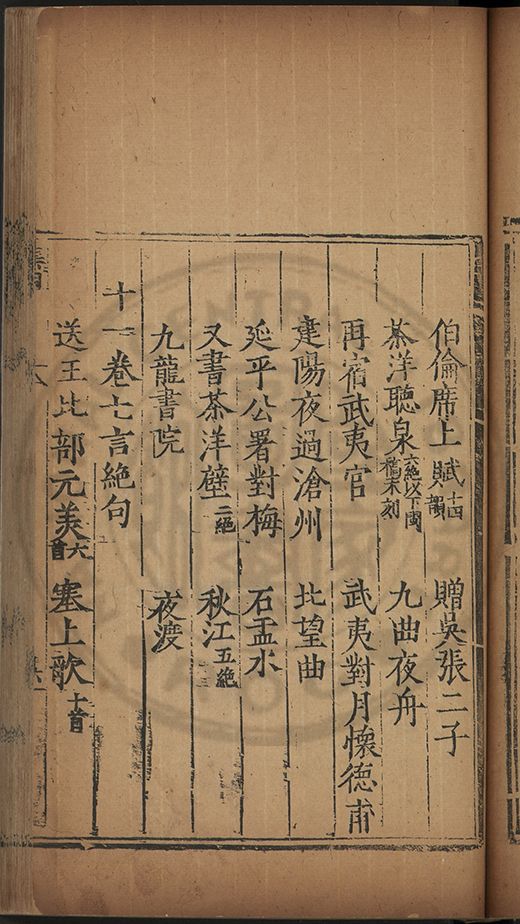 伯倫席上賦十四韻　贈吳張二子
茶洋聽泉六絕以下閩稿未刻　九曲夜舟
再宿武夷宮　武夷對月懷德甫
建陽夜過滄州　北望曲
延平公署對梅　石盂水
又書茶洋壁二絕　秋江五絕
九龍書院　夜渡
十一卷七言絕句
送王比部元美六首　塞上歌十首